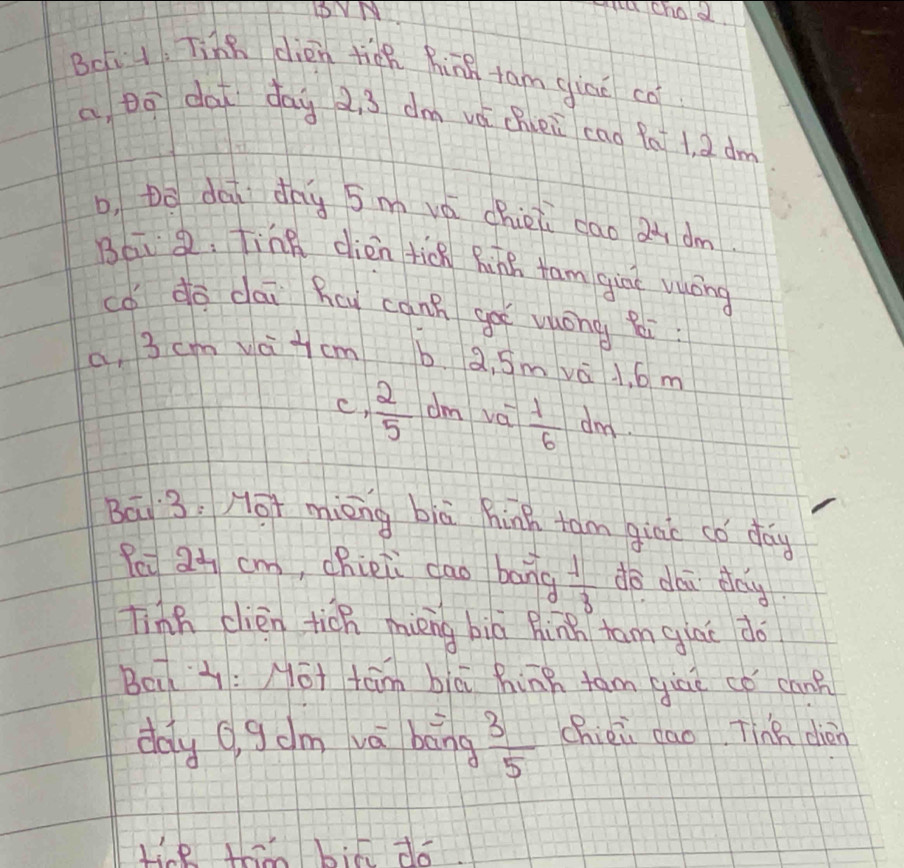 BVN.
chia cho 2.
Bài 1: Tính diện tích hình tam giác có:
a, Độ dài đáy 2,3 dm và chiều cao là 1,2 dm
b, Độ dài đáy 5 m và chiều cao 24 dm.
Bài 2: Tính diện tích hình tam giác vuông
có độ dài hai cạnh góc vuông là:
a, 3 cm và 4 cm b. 2,5m và 1,6 m
c, 2/5 dm và 1/6 dm.
Bài 3: Một miếng bìa hình tam giác có đáy
là 24 cm, chiều cao bằng 1/3 độ dài đáy.
Tính diện tích miếng bìa hình tam giác đó
Bài 4: Một tấm bìa hình tam giác có cạnh
đáy 0,9 dm và bằng 3/5 chiều cao. Tính diện
tích tấm bìa đó.